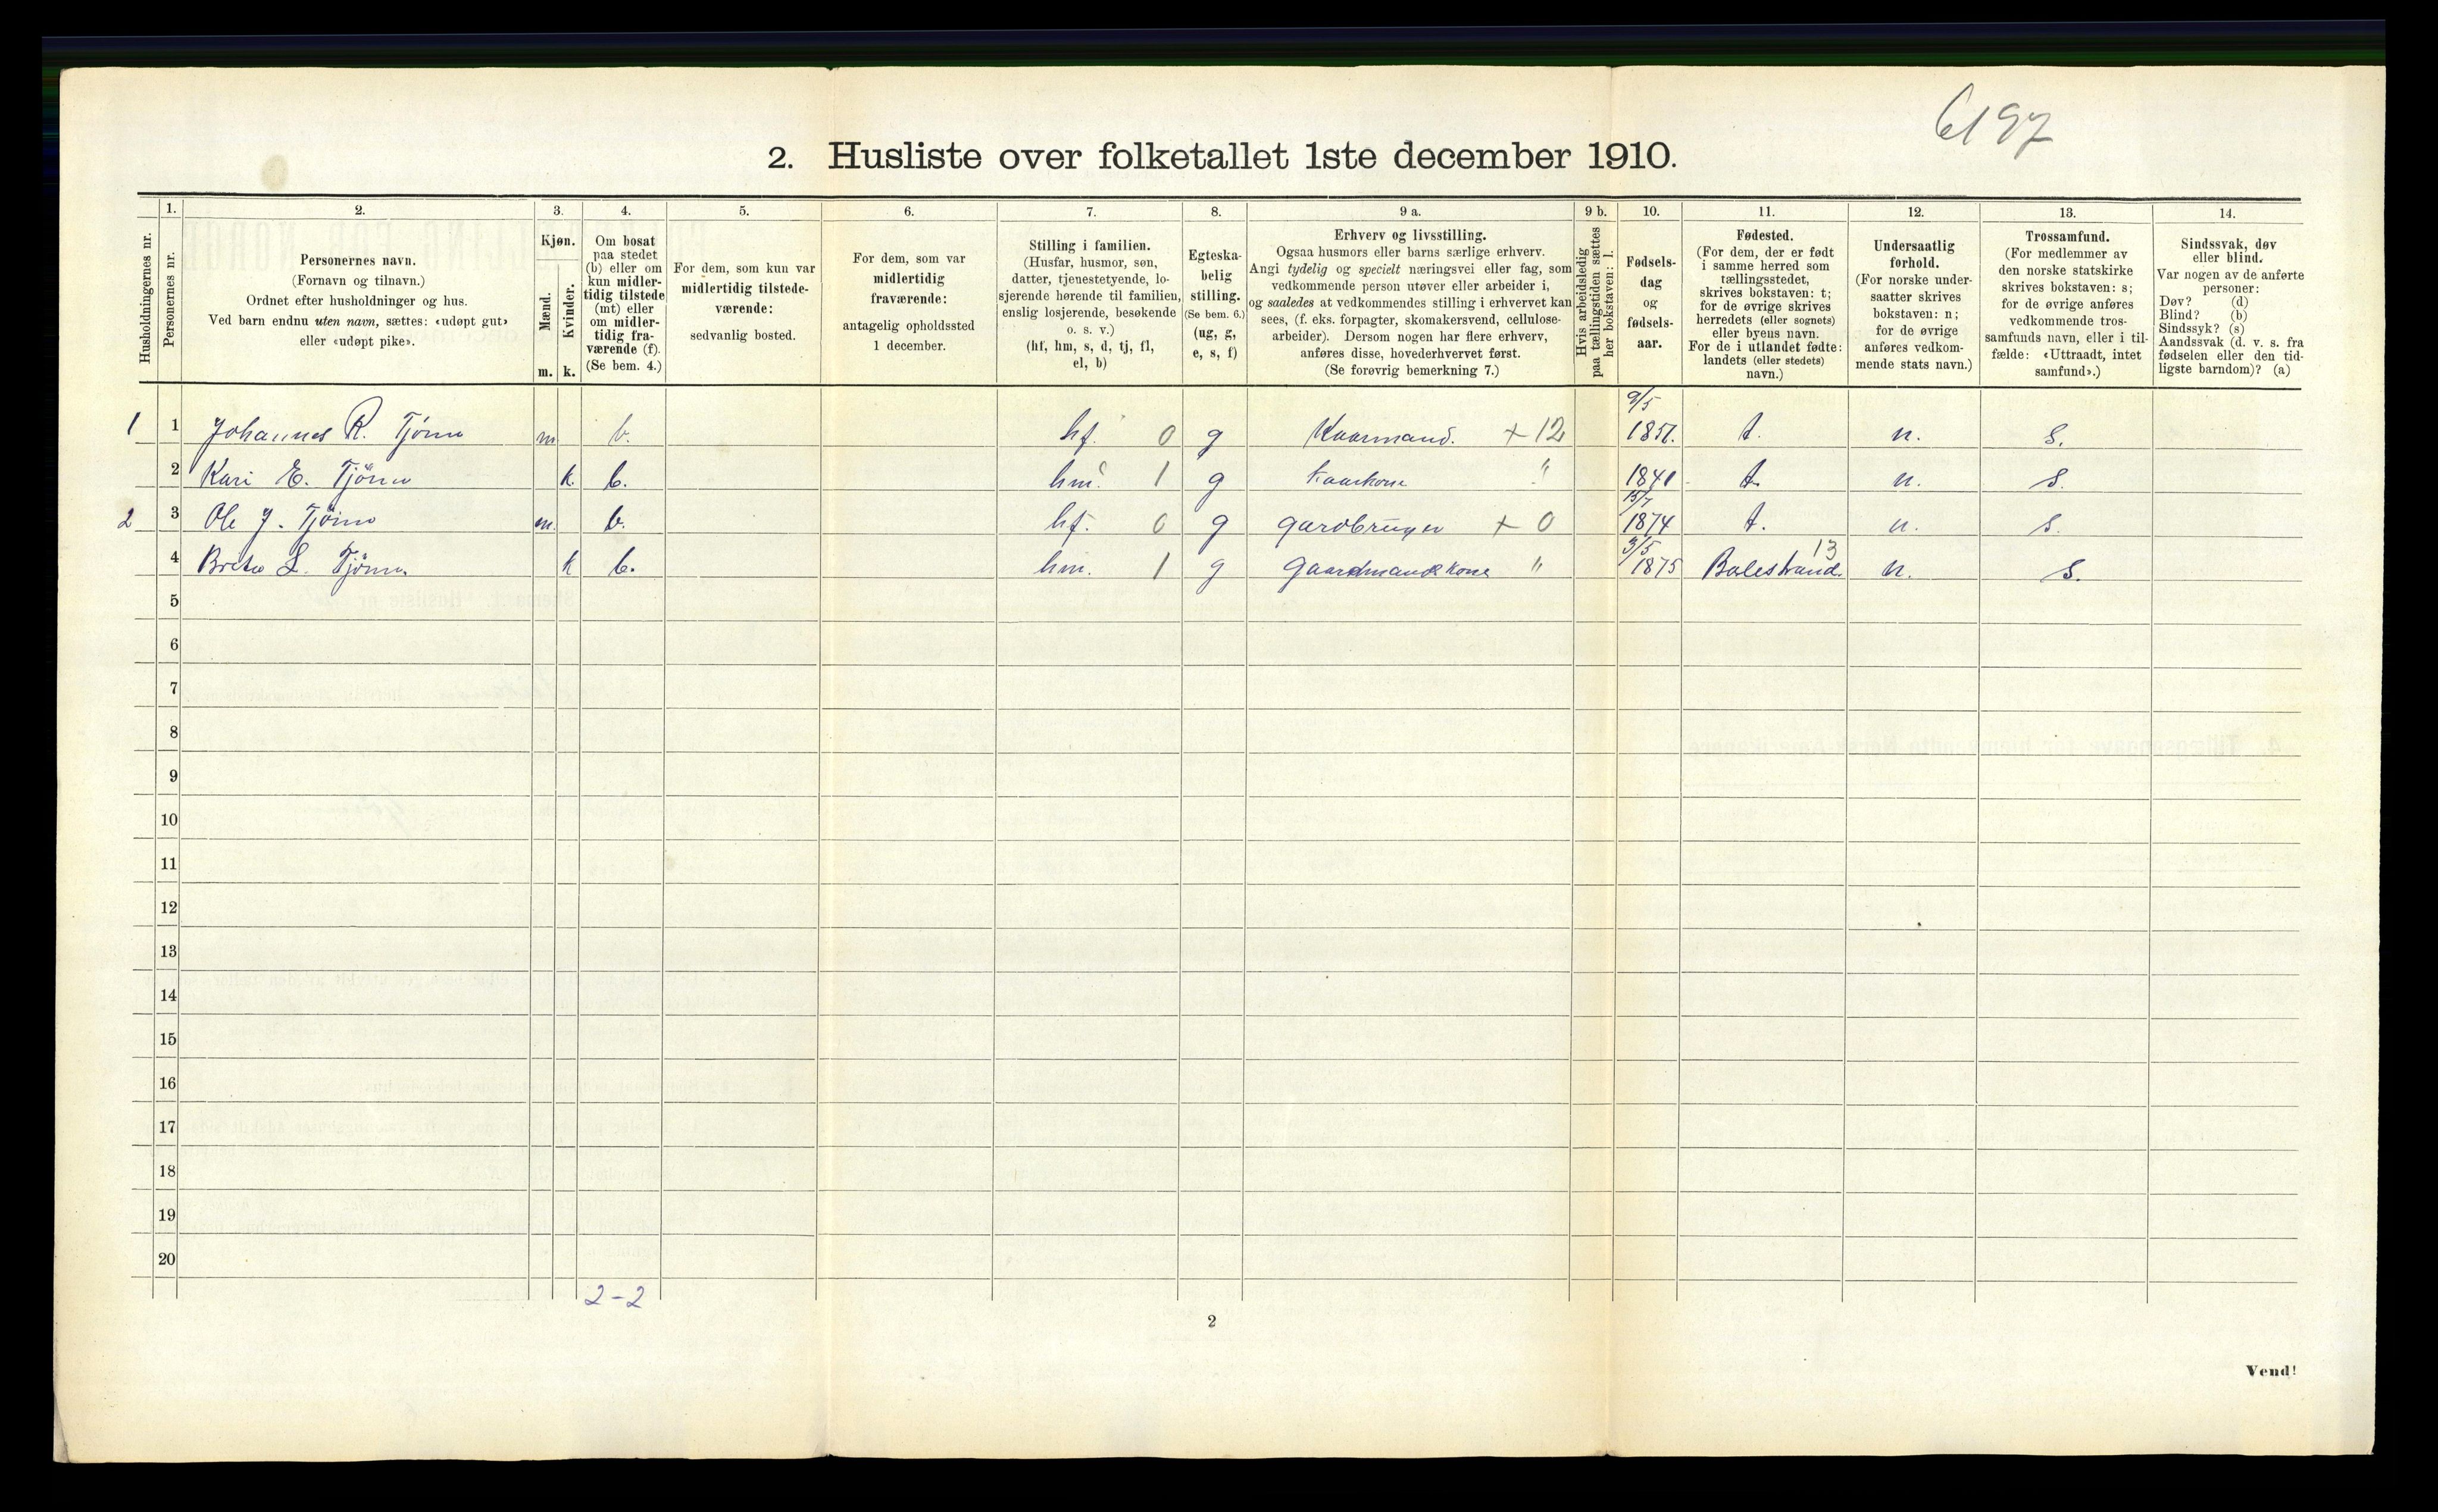 6197
2. Husliste over folketallet 1ste december 1910.
Husholdningernes nr.
1.
Personernes nr.
2.
Personernes navn.
(Fornavn og tilnavn.)
Ordnet efter husholdninger og hus.
Ved barn endnu uten navn, sættes: «udøpt gut»
eller «udøpt pike».
3.
Kjøn.
Mænd.
Kvinder.
m. k.
4.
Om bosat
paa stedet
(b) eller om
kun midler-
tidig tilstede
(mt) eller
om midler-
tidig fra-
værende (f).
(Se bem. 4.)
5.
For dem, som kun var
midlertidig tilstede-
værende:
sedvanlig bosted.
6.
For dem, som var
midlertidig
fraværende:
antagelig opholdssted
1 december.
7.
Stilling i familien.
(Husfar, husmor, søn,
datter, tjenestetyende, lo-
sjerende hørende til familien,
enslig losjerende, besøkende
o. s. v.)
(hf, hm, s, d, tj, fl,
el, b)
8.
Egteska-
belig
stilling.
(Se bem. 6.)
(ug, g,
e, s, f)
9 a.
Erhverv og livsstilling.
Ogsaa husmors eller barns særlige erhverv.
Angi tydelig og specielt næringsvei eller fag, som
vedkommende person utøver eller arbeider i,
og saaledes at vedkommendes stilling i erhvervet kan
sees, (f. eks. forpagter, skomakersvend, cellulose-
arbeider). Dersom nogen har flere erhverv,
anføres disse, hovederhvervet først.
(Se forøvrig bemerkning 7.)
9 b.
Hvis arbeidsledig
paa tællingstiden sættes
her bokstaven: l.
10.
Fødsels-
dag
og
fødsels-
aar.
11.
Fødested.
(For dem, der er født
i samme herred som
tællingsstedet,
skrives bokstaven: t;
for de øvrige skrives
herredets (eller sognets)
eller byens navn.
For de i utlandet fødte:
landets (eller stedets)
navn.)
12.
Undersaatlig
forhold.
(For norske under-
saatter skrives
bokstaven: n;
for de øvrige
anføres vedkom-
mende stats navn.)
13.
Trossamfund.
(For medlemmer av
den norske statskirke
skrives bokstaven: s;
for de øvrige anføres
vedkommende tros-
samfunds navn, eller i til-
fælde: «Uttraadt, intet
samfund».)
14.
Sindssvak, døv
eller blind.
Var nogen av de anførte
personer:
Døv? (d)
Blind? (b)
Sindssyk? (s)
Aandssvak (d. v. s. fra
fødselen eller den tid-
ligste barndom)? (a)
9/5
1 1 Johannes R. Tjönn m b. hf. 0 g Kaarmand. + 12 t. n. s.
2 Kari E. Tjönn k. b. hm. 1 g Kaarkone " 1841 t. n. s.
15/7
2 3 Ole J. Tjönn m. b. hf. 0 g gardbruger + 0 1874 t. n. s.
3/5 13
4 Brita L. Tjönn. k b. hm. 1 g Gaardmandskone " 1875 Balestrand. n. s.
5
6
7
8
9
10
11
12
13
14
15
16
17
18
19
20
2-2
2
Vend!